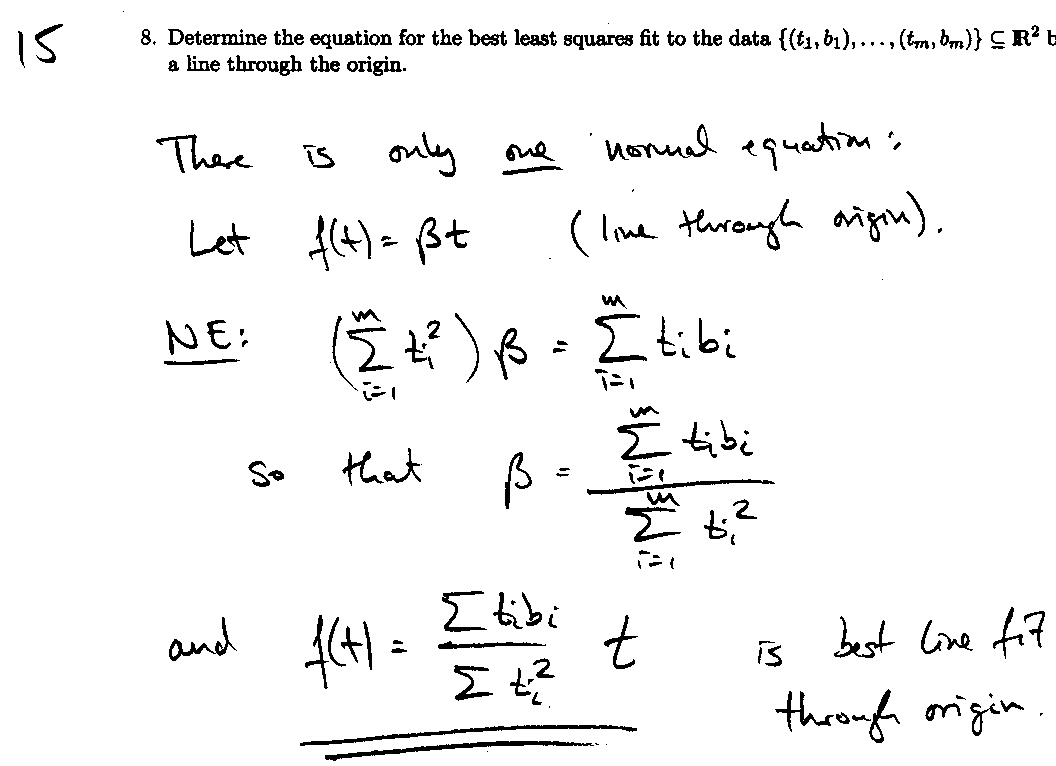 15
8. Determine the equation for the best least squares fit to the data {(t₁, b₁), . . . , (tₘ, bₘ)} ⊆ ℝ² b
a line through the origin.
There is only one normal equation:
Let f(t) = βt (line through origin).
NE: (∑_{i=1}^{m} tᵢ²) β = ∑_{i=1}^{m} tᵢbᵢ
So that β = ∑_{i=1}^{m} tᵢbᵢ / ∑_{i=1}^{m} tᵢ²
and f(t) = ∑ tᵢbᵢ / ∑ tᵢ² t is best line fit
through origin.